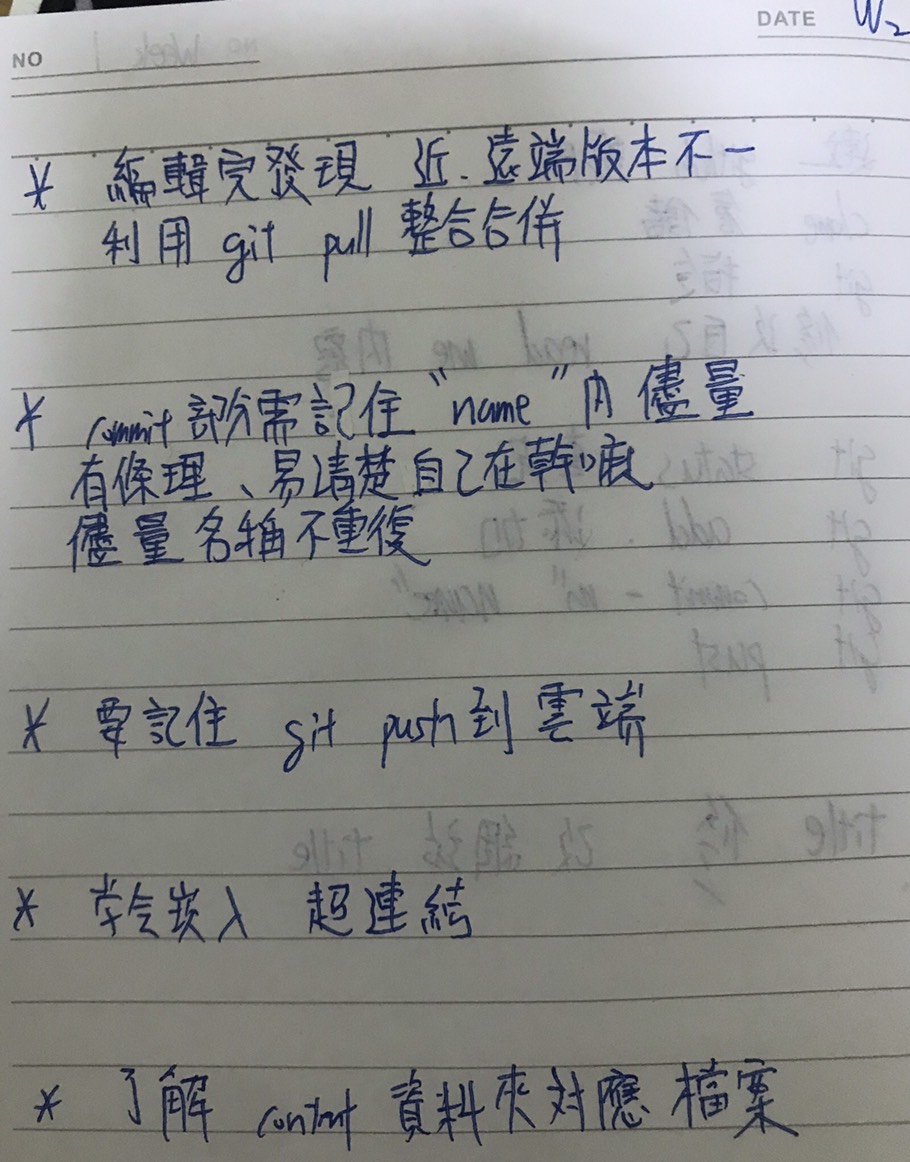 DATE W2
NO
* 編輯完發現 近、遠端版本不一
利用 git pull 整合合併
* commit 部份需記住 "name" 內 儘量
有條理、易清楚自己在幹嘛
儘量名稱不重復
* 要記住 git push 到雲端
* 学会崁入 超連結
* 了解 content 資料夾对應檔案